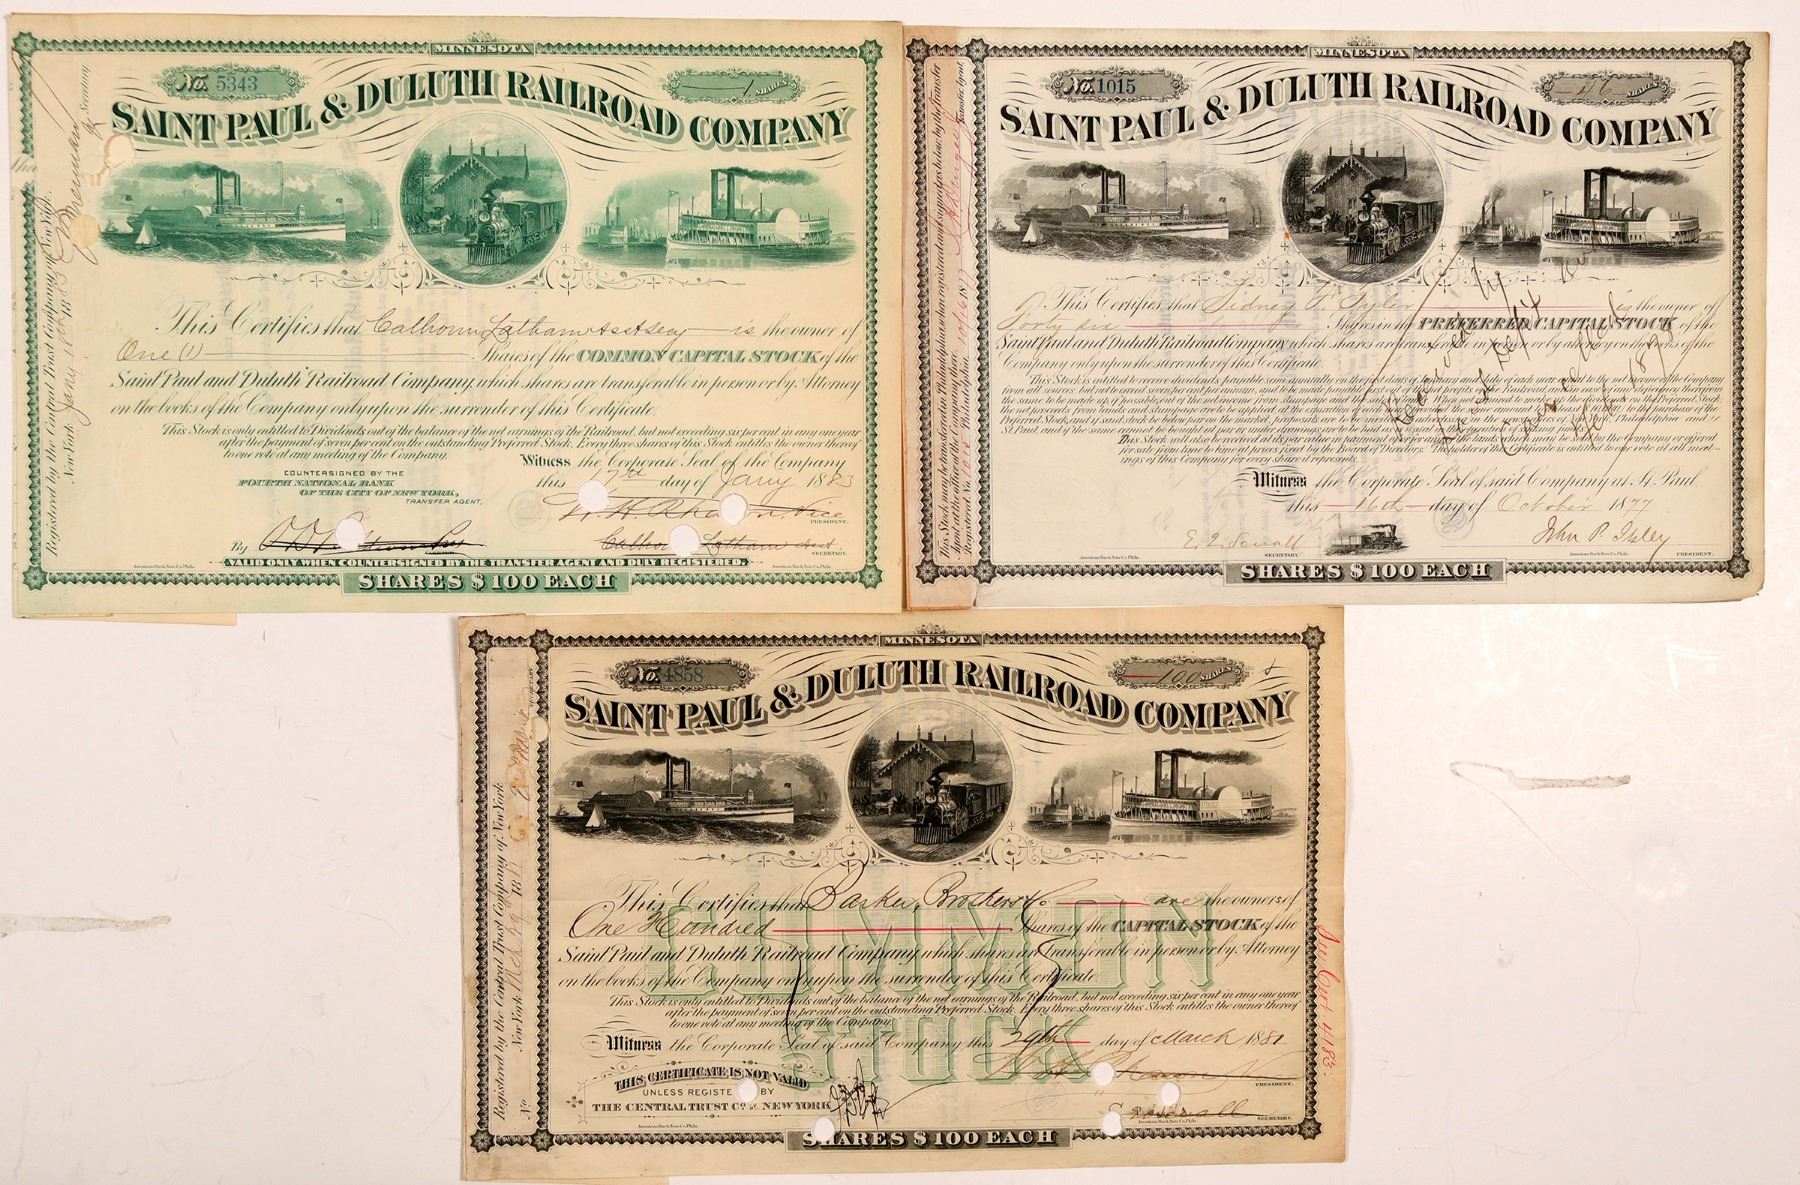 MINNESOTA
No. 5343
1 SHARES
SAINT PAUL & DULUTH RAILROAD COMPANY
This Certifies that Calhoun Latham Asst Secy is the owner of
One (1) Shares of the COMMON CAPITAL STOCK of the
Saint Paul and Duluth Railroad Company, which shares are transferable in person or by Attorney
on the books of the Company only upon the surrender of this Certificate.
This Stock is only entitled to Dividends out of the balance of the net earnings of the Railroad, but not exceeding six per cent in any one year
after the payment of seven per cent on the outstanding Preferred Stock. Every three shares of this Stock entitles the owner thereof
to one vote at any meeting of the Company.
Witness the Corporate Seal of the Company
this 17th day of Jany 1883
COUNTERSIGNED BY THE
FOURTH NATIONAL BANK
OF THE CITY OF NEW YORK,
TRANSFER AGENT,
By
PRESIDENT.
Calhoun Latham Asst. SECRETARY.
VALID ONLY WHEN COUNTERSIGNED BY THE TRANSFER AGENT AND DULY REGISTERED.
American Bank Note Co. Phila.
American Bank Note Co. Phila.
SHARES $100 EACH
Registered by the Central Trust Company of New York.
New York Jany 18th 1883
Secretary
MINNESOTA
No. 1015
46 SHARES
SAINT PAUL & DULUTH RAILROAD COMPANY
This Certifies that Sidney F. Tyler is the owner of
Forty six Shares in the PREFERRED CAPITAL STOCK of the
Saint Paul and Duluth Railroad Company which shares are transferable in person or by attorney on the books of the
Company only upon the surrender of this Certificate.
This Stock will also be received at its par value in payment of or for any of the lands, which may be sold by the Company or offered
for sale from time to time at prices fixed by the Board of Directors. The holder of the Certificate is entitled to one vote at all meet-
ings of this Company for every share it represents.
Witness the Corporate Seal of said Company at St. Paul.
this 16th day of October 1877
SECRETARY.
John P. Ilsley
PRESIDENT.
American Bank Note Co. Phila.
American Bank Note Co. Phila.
SHARES $100 EACH
Received by
Land Dept
Cancelled
This Stock may be transferred at Philadelphia when registered and signed as below by the Transfer
Agent at the office of the Company there.
Registered No. 1015 Philadelphia 10/16 1877
Transfer Agent.
MINNESOTA
No. 4858
100 SHARES
SAINT PAUL & DULUTH RAILROAD COMPANY
This Certifies that Barker Brothers & Co. are the owners of
One Hundred Shares of the CAPITAL STOCK of the
Saint Paul and Duluth Railroad Company which shares are Transferable in person or by Attorney
on the books of the Company only upon the surrender of this Certificate.
This Stock is only entitled to Dividends out of the balance of the net earnings of the Railroad, but not exceeding six per cent in any one year
after the payment of seven per cent on the outstanding Preferred Stock. Every three shares of this Stock entitles the owner thereof
to one vote at any meeting of the Company.
COMMON
STOCK
Witness the Corporate Seal of said Company this 29th day of March 1881
THIS CERTIFICATE IS NOT VALID
UNLESS REGISTERED BY
THE CENTRAL TRUST Co. OF NEW YORK
PRESIDENT.
SECRETARY.
American Bank Note Co. Phila.
American Bank Note Co. Phila.
SHARES $100 EACH
Registered by the Central Trust Company of New York
New York 1881
No.